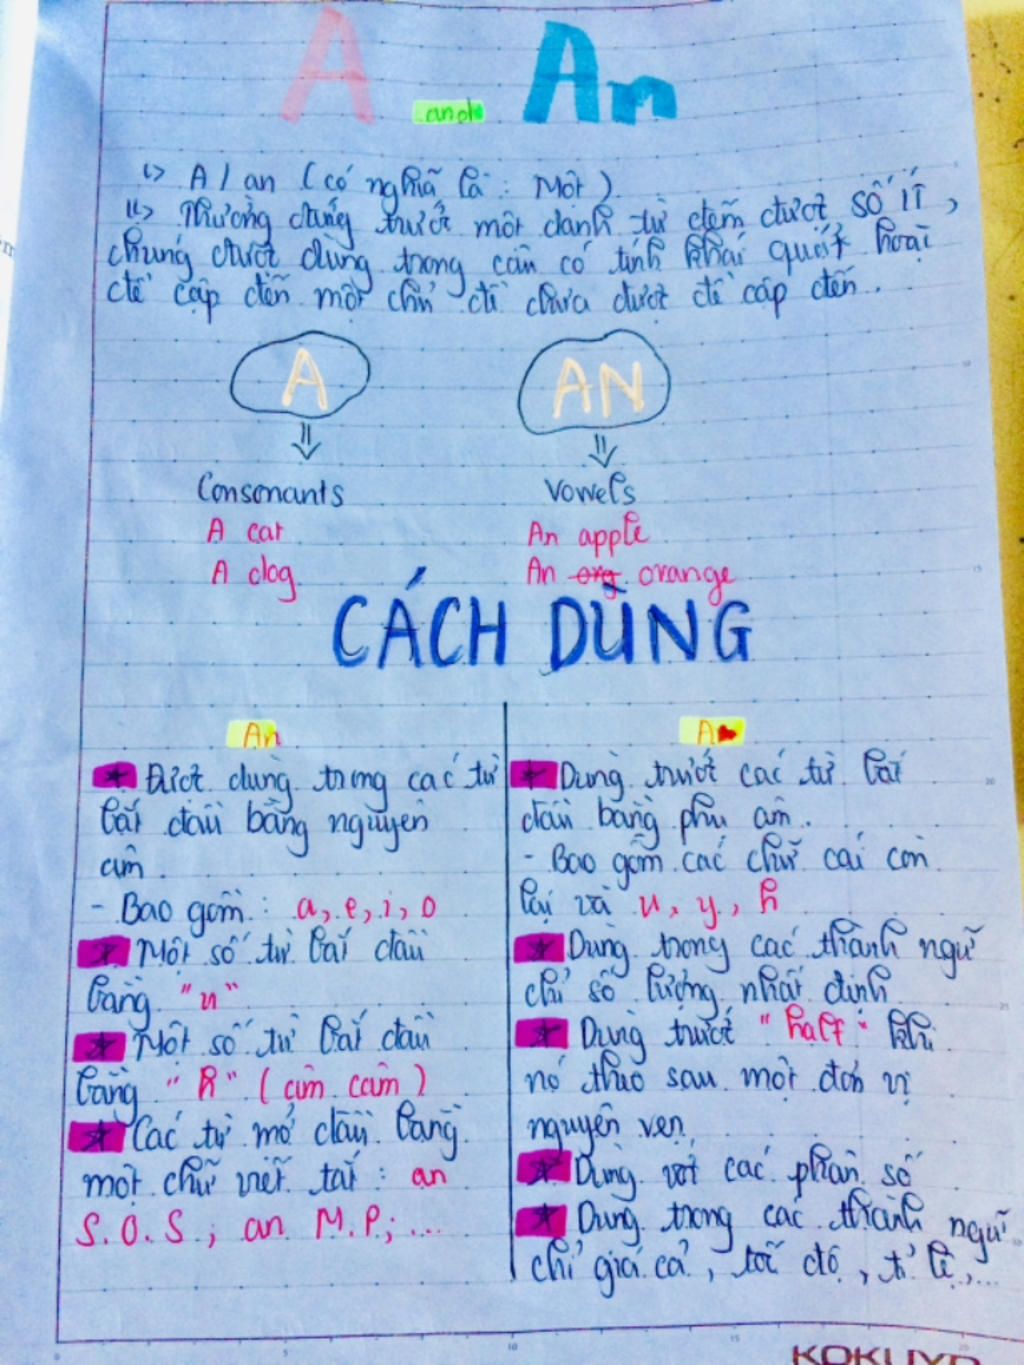 A and An
↳ A / an (có nghĩa là : Một)
↳ Thường đứng trước một danh từ đếm được số ít,
chúng được dùng trong câu có tính khái quát hoặc
đề cập đến một chủ đề chưa được đề cập đến.
A AN
Consonants Vowels
A cat An apple
A dog An org orange
CÁCH DÙNG
An
★ Được dùng trong các từ
bắt đầu bằng nguyên
âm.
- Bao gồm: a, e, i, o
★ Một số từ bắt đầu
bằng "u"
★ Một số từ bắt đầu
bằng "h" (âm câm)
★ Các từ mở đầu bằng
một chữ viết tắt: an
S.O.S; an M.P;...
A
★ Dùng trước các từ bắt
đầu bằng phụ âm.
- Bao gồm các chữ cái còn
lại và u, y, h
★ Dùng trong các thành ngữ
chỉ số lượng nhất định
★ Dùng trước "half" khi
nó theo sau một đơn vị
nguyên vẹn
★ Dùng với các phân số
★ Dùng trong các thành ngữ
chỉ giá cả, tốc độ, tỉ lệ,...
KOKUYO